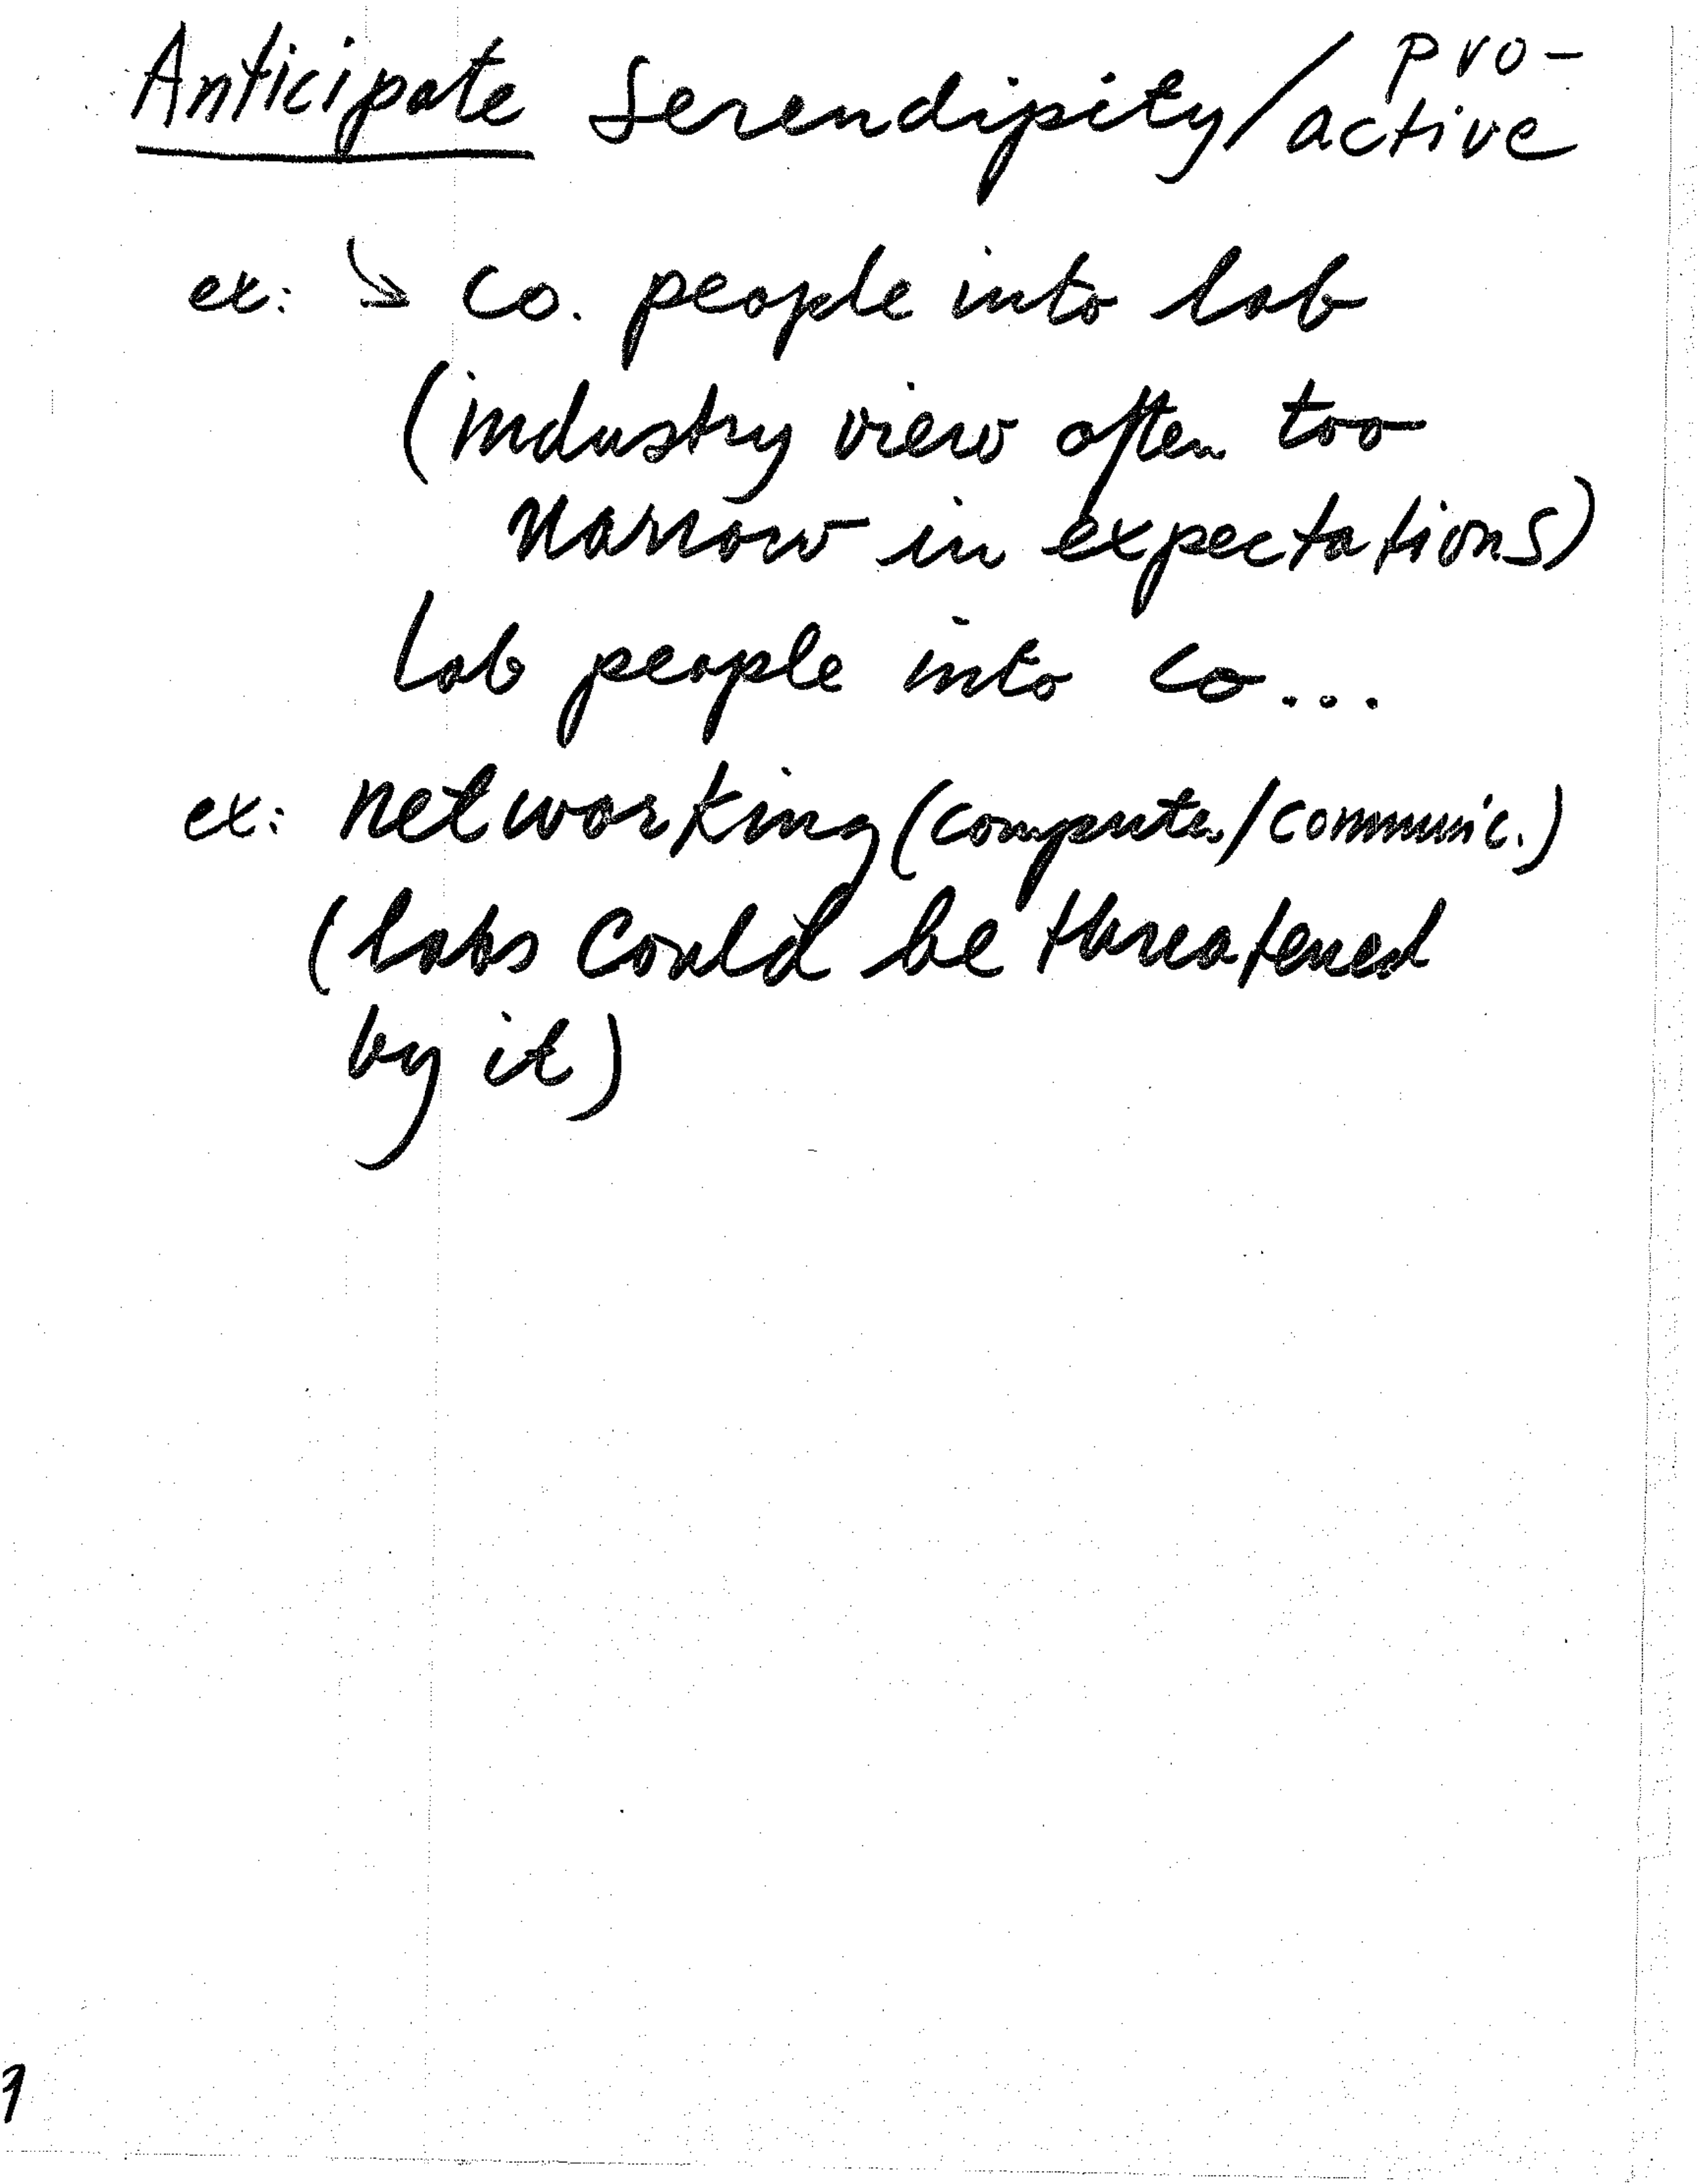 Anticipate Serendipity/pro-
active
ex: ↘ co. people into lab
(industry view often too
narrow in expectations)
Lab people into co...
ex: networking (computer/communic.)
(labs could be threatened
by it)